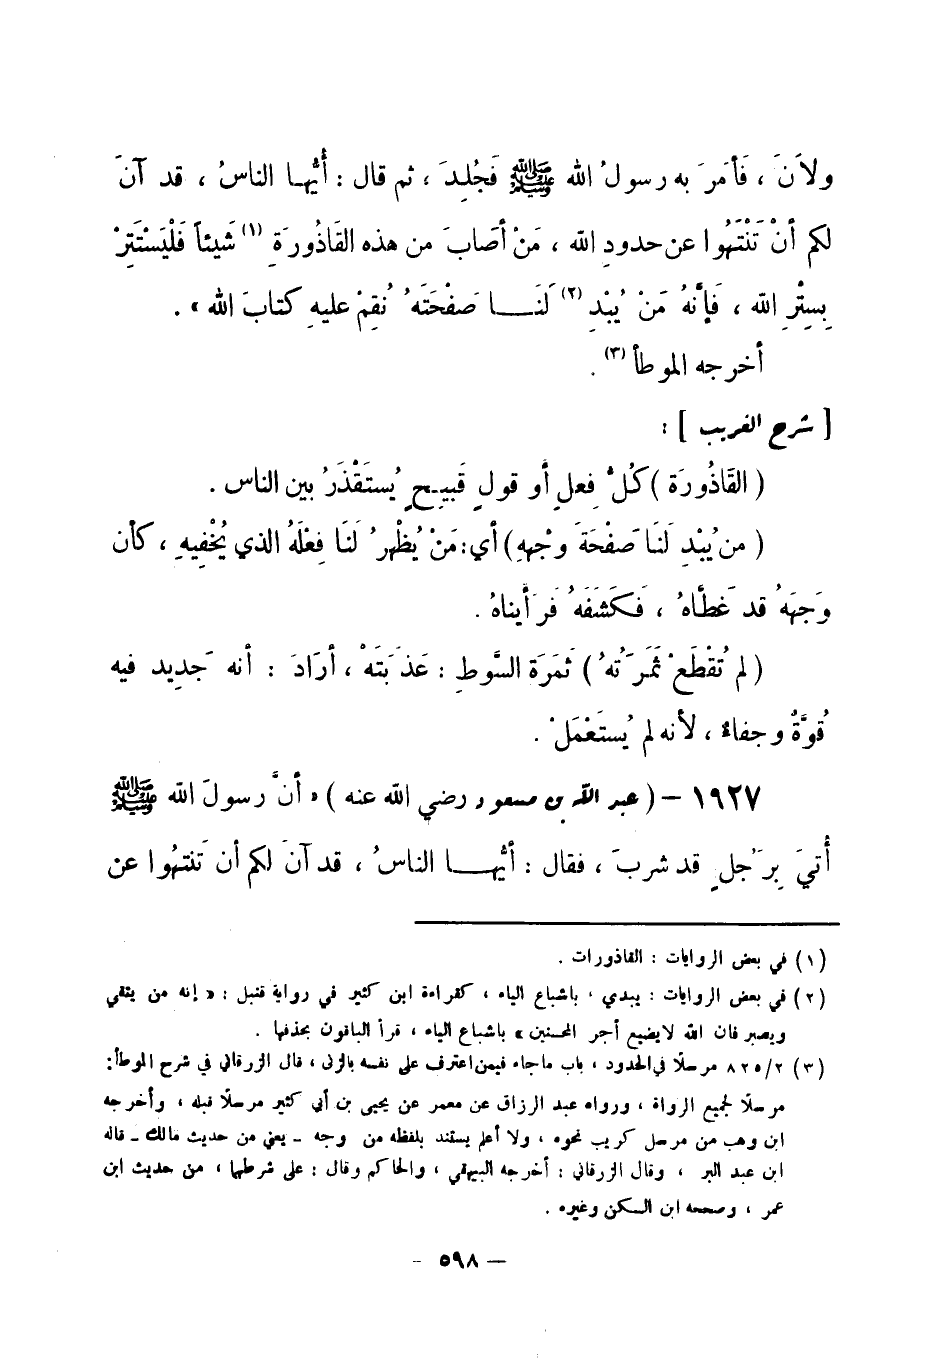 ولاَنَ ، فَأَمَرَ به رسولُ الله ﷺ فَجُلِدَ ، ثم قال : أَيُّها الناسُ ، قد آنَ
لكم أنْ تَنْتَهُوا عن حدودِ الله ، مَنْ أصَابَ من هذه القَاذُورَةِ (١) شَيْئاً فَلْيَسْتَتِرْ
بِسِتْرِ الله ، فَإنَّهُ مَنْ يُبْدِ (٢) لَنَا صَفْحَتَهُ نُقِمْ عليهِ كتابَ الله » .
أخرجه الموطأ (٣) .
[ شرح الغريب ] :
( القَاذُورَة ) كُلُّ فِعلٍ أو قولٍ قَبيحٍ يُستَقْذَرُ بين الناس .
( من يُبْدِ لَنَا صَفْحَةَ وَجْههِ ) أي : مَنْ يُظْهِرُ لَنَا فِعْلَهُ الذي يُخْفِيهِ ، كأن
وَجهَهُ قد غَطَّاهُ ، فَكَشَفَهُ فَرَأَيناهُ .
( لم تُقْطَعْ ثَمَرَتُهُ ) ثَمَرَة السَّوطِ : عَذَبَتَهْ ، أرَادَ : أنه جَديد فيه
قُوَّةٌ وجفاءٌ ، لأنه لم يُستَعْمَلْ .
١٩٢٧ – ( عبد الله بن مسعود رضي الله عنه ) « أنَّ رسولَ الله ﷺ
أُتيَ بِرَجُلٍ قد شربَ ، فقال : أيُّها الناسُ ، قد آنَ لكم أن تَنتهُوا عن
(١) في بعض الروايات : القاذورات .
(٢) في بعض الروايات : يبدي ، باشباع الياء ، كقراءة ابن كثير في رواية قنبل : « إنه من يتقي
ويصبر فان الله لايضيع أجر المحسنين » باشباع الياء ، قرأ الباقون بحذفها .
(٣) ٨٢٥/٢ مرسلًا في الحدود ، باب ماجاء فيمن اعترف على نفسه بالزنى ، قال الزرقاني في شرح الموطأ :
مرسلًا لجميع الرواة ، ورواه عبد الرزاق عن معمر عن يحيى بن أبي كثير مرسلًا قبله ، وأخرجه
ابن وهب من مرسل كريب نحوه ، ولا أعلم يستند بلفظه من وجه ـ يعني من حديث مالك ـ قاله
ابن عبد البر ، وقال الزرقاني : أخرجه البيهقي ، والحاكم وقال : على شرطهما ، من حديث ابن
عمر ، وصححه ابن السكن وغيره .
– ٥٩٨ –